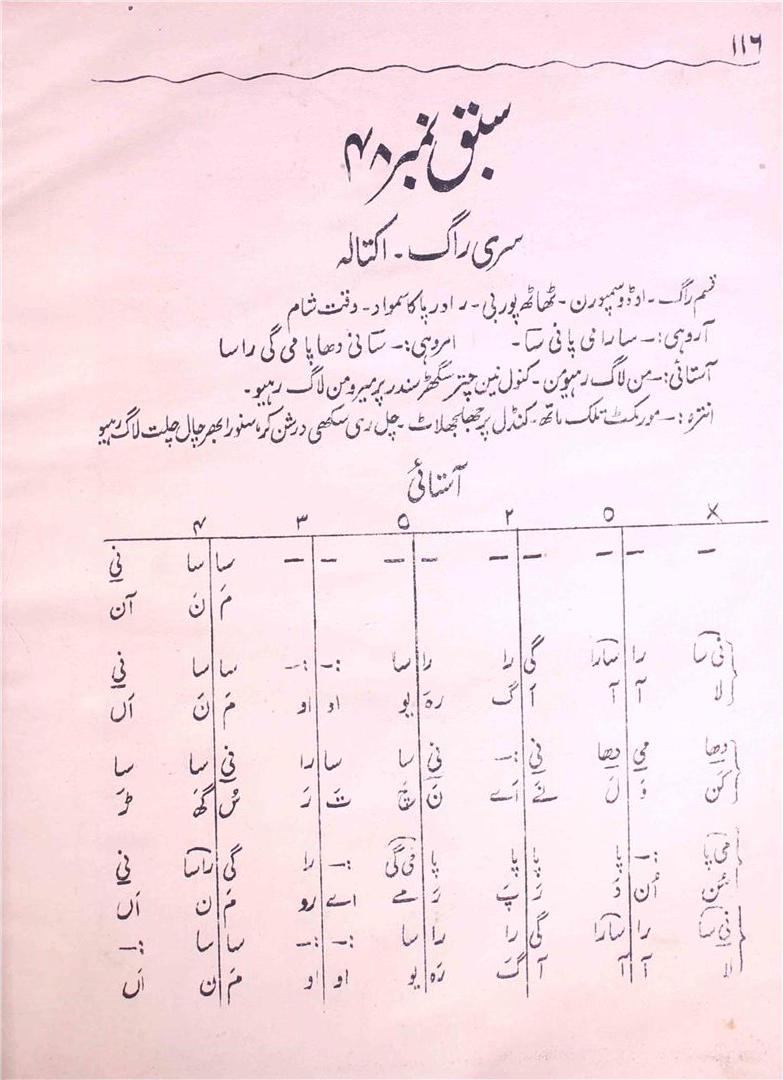 ۱۱۶
سبق نمبر ۴۸
سری راگ ۔ اکتالہ
قسم راگ ۔ اوڈو سمپورن ۔ ٹھاٹھ پوربی ۔ را در پا کا سمواد ۔ وقت شام
آروہی :۔ سا را می پا نی سا ۔ امروہی :۔ سا نی دھا پا می گی را سا
آستائی :۔ من لاگ رہیو من ۔ کنول نین چتر سگھڑ سندر پر میرو من لاگ رہیو ۔
انترہ :۔ مور مکٹ تلک ماتھ ۔ کنڈل پر جھلجھلاٹ ۔ چل ری سکھی درشن کر، سنورا بھر چال چلت لاگ رہیو
آستائی
X ۵ ۲ ۵ ۳ ۴
— — — — — — — — — سا سا نی
مَ نَ آن
نی سا را سارا گی را را سا :— :— سا سا نی
لا آ آ آ گ رہَ یو او او مَ نَ اَں
دھا می دھا نی :— نی سا سا را نی سا سا
کن وَ ل نَے اَے نَ تَ رَ سُ گھَ ڑَ
پا :— پا پا پا نی گی :— را گی راسا نی
رَ مے اے رو مَ نَ اَں
نی سا را سارا گی را را سا :— :— سا سا :—
لا آ آ آ گَ رہَ یو او او مَ نَ اَں